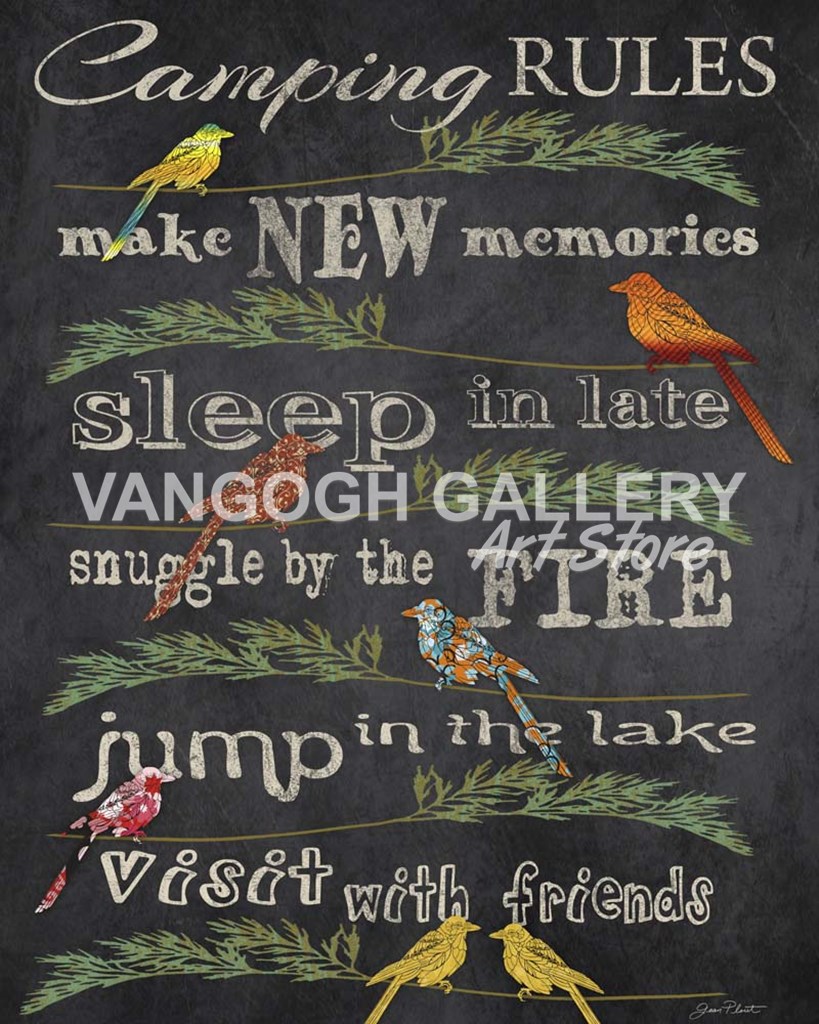 Camping RULES
make NEW memories
sleep in late
VANGOGH GALLERY
Art Store
snuggle by the FIRE
jump in the lake
visit with friends
Jean Plout